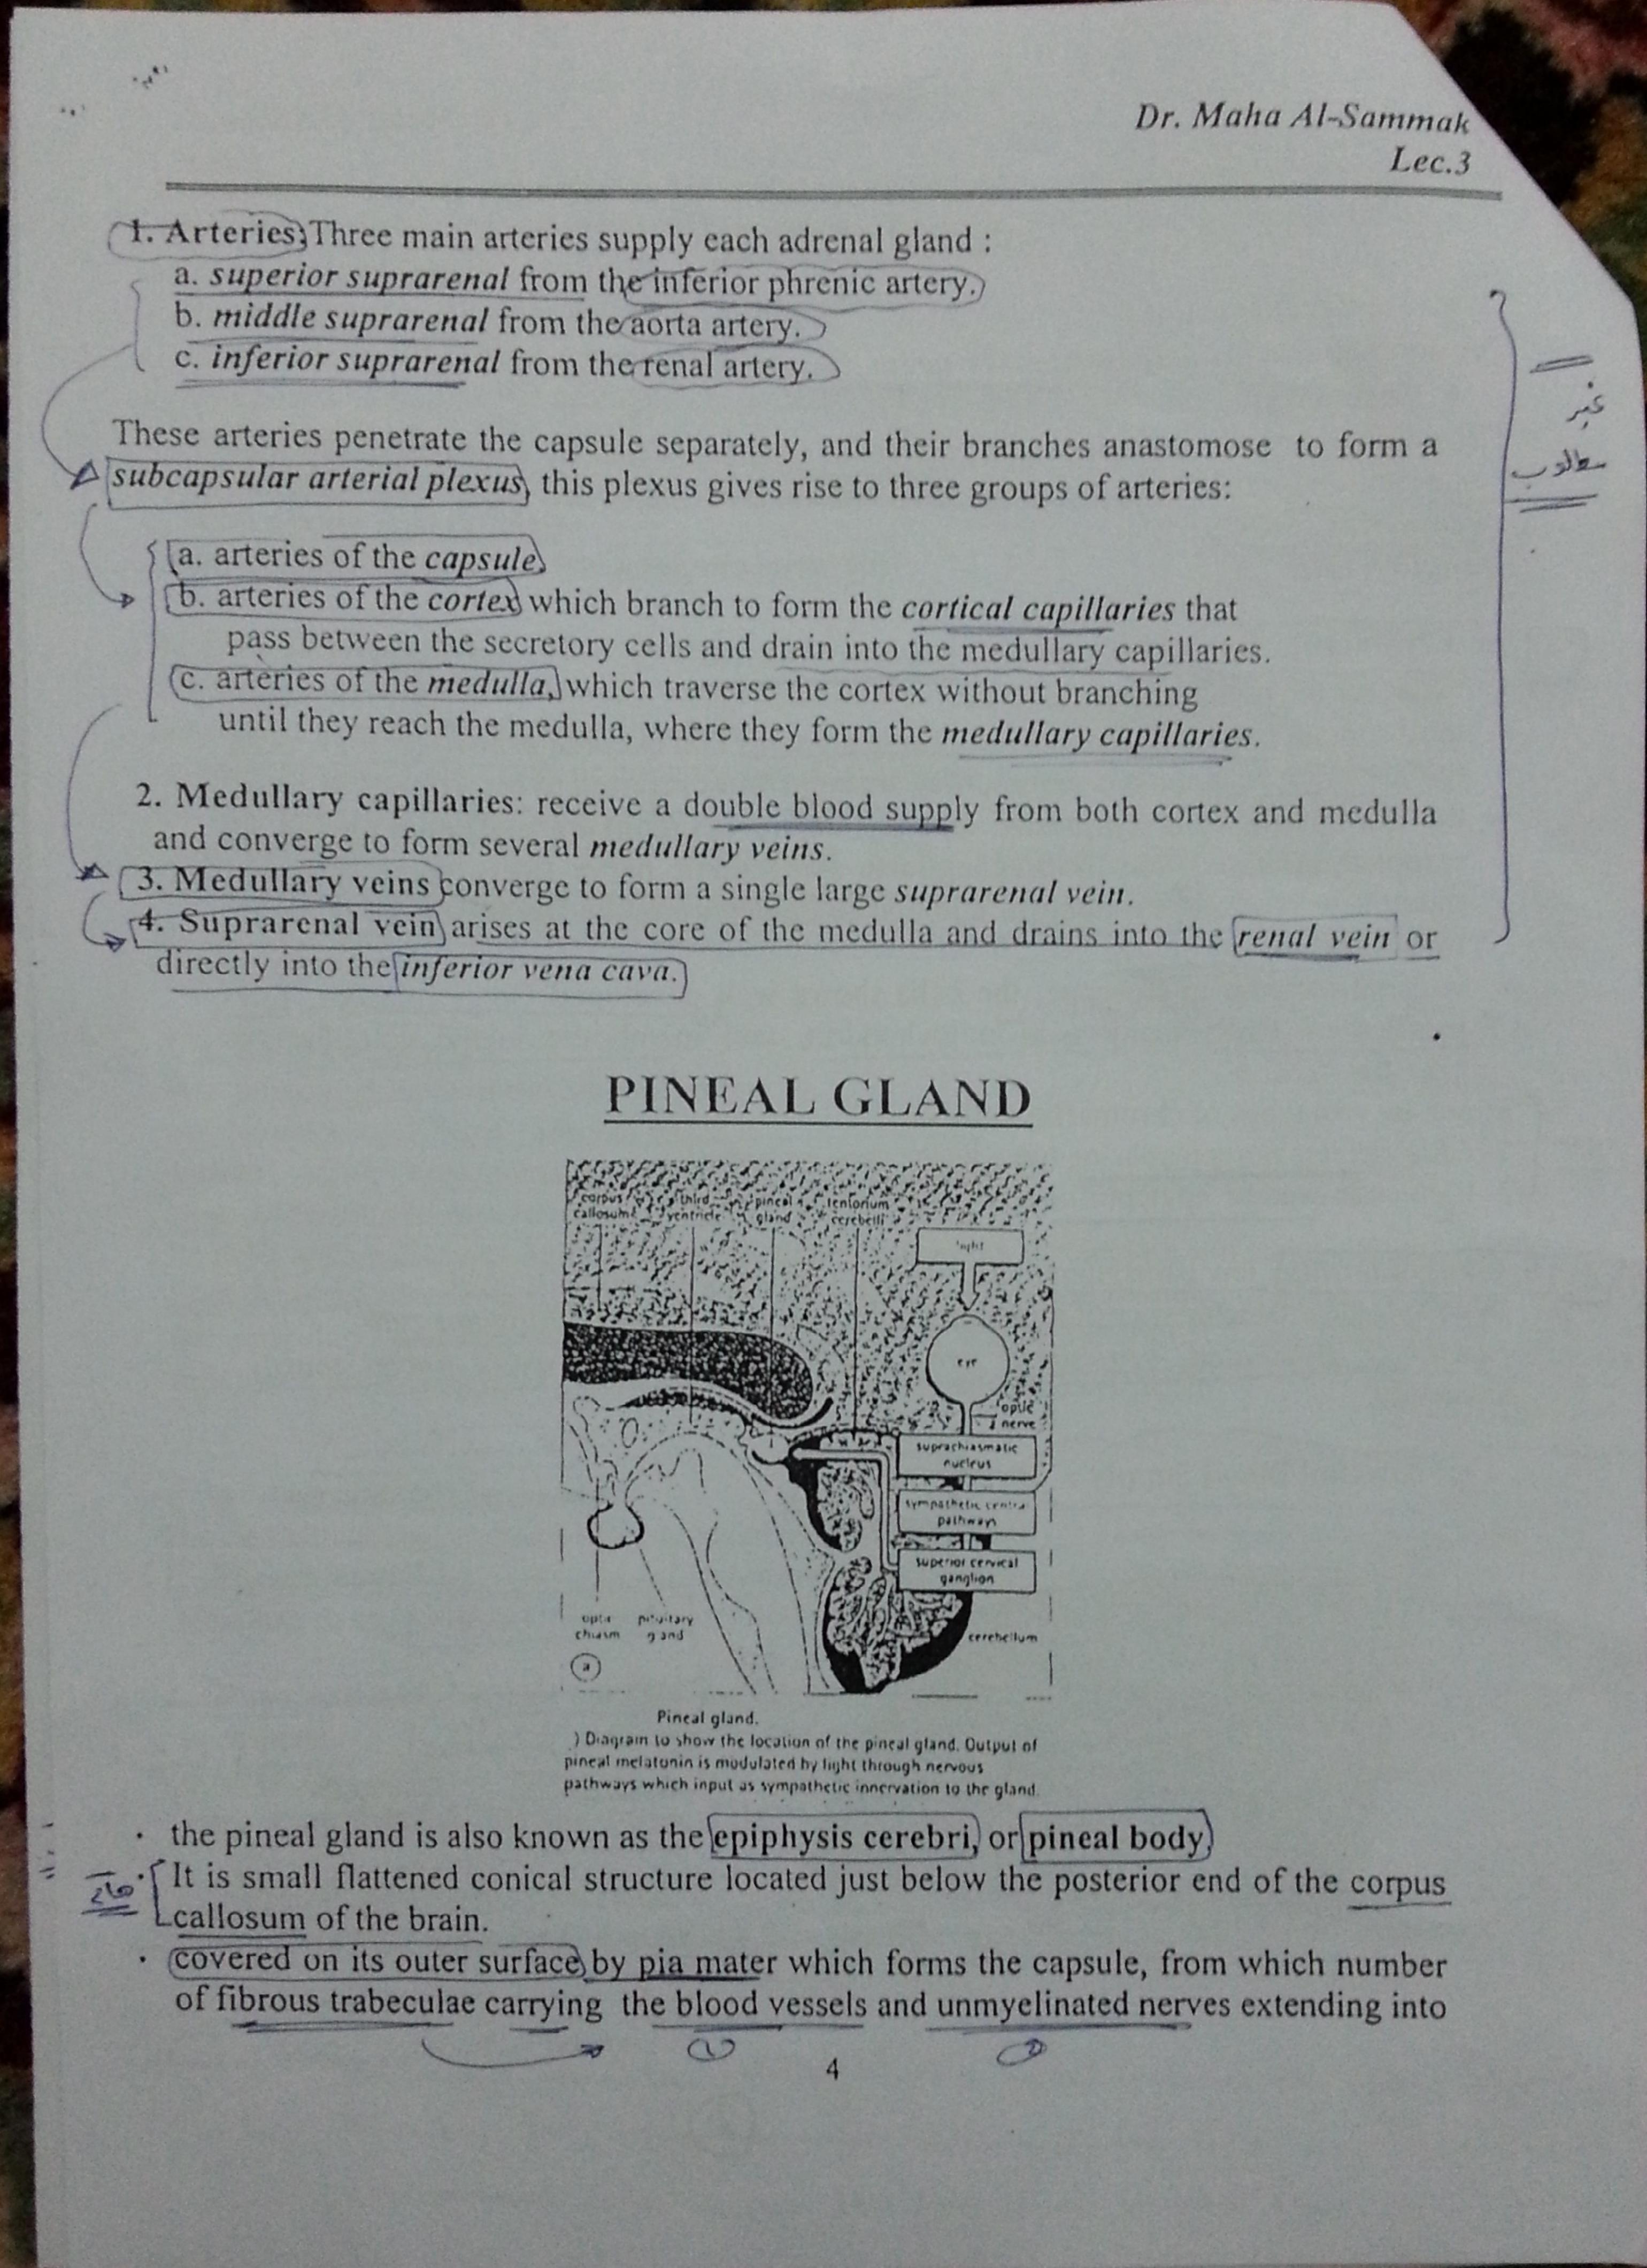 Dr. Maha Al-Sammak
Lec.3
1. Arteries; Three main arteries supply each adrenal gland :
a. superior suprarenal from the inferior phrenic artery.
b. middle suprarenal from the aorta artery.
c. inferior suprarenal from the renal artery.
غير
مطلوب
These arteries penetrate the capsule separately, and their branches anastomose to form a
subcapsular arterial plexus, this plexus gives rise to three groups of arteries:
a. arteries of the capsule
b. arteries of the cortex which branch to form the cortical capillaries that
pass between the secretory cells and drain into the medullary capillaries.
c. arteries of the medulla, which traverse the cortex without branching
until they reach the medulla, where they form the medullary capillaries.
2. Medullary capillaries: receive a double blood supply from both cortex and medulla
and converge to form several medullary veins.
3. Medullary veins converge to form a single large suprarenal vein.
4. Suprarenal vein arises at the core of the medulla and drains into the renal vein or
directly into the inferior vena cava.
PINEAL GLAND
corpus callosum
third ventricle
pineal gland
tentorium cerebelli
light
eye
optic nerve
suprachiasmatic nucleus
sympathetic central pathways
superior cervical ganglion
optic chiasm
pituitary gland
cerebellum
a
Pineal gland.
) Diagram to show the location of the pineal gland. Output of
pineal melatonin is modulated by light through nervous
pathways which input as sympathetic innervation to the gland.
· the pineal gland is also known as the epiphysis cerebri, or pineal body,
· It is small flattened conical structure located just below the posterior end of the corpus
callosum of the brain.
· covered on its outer surface by pia mater which forms the capsule, from which number
of fibrous trabeculae carrying the blood vessels and unmyelinated nerves extending into
4